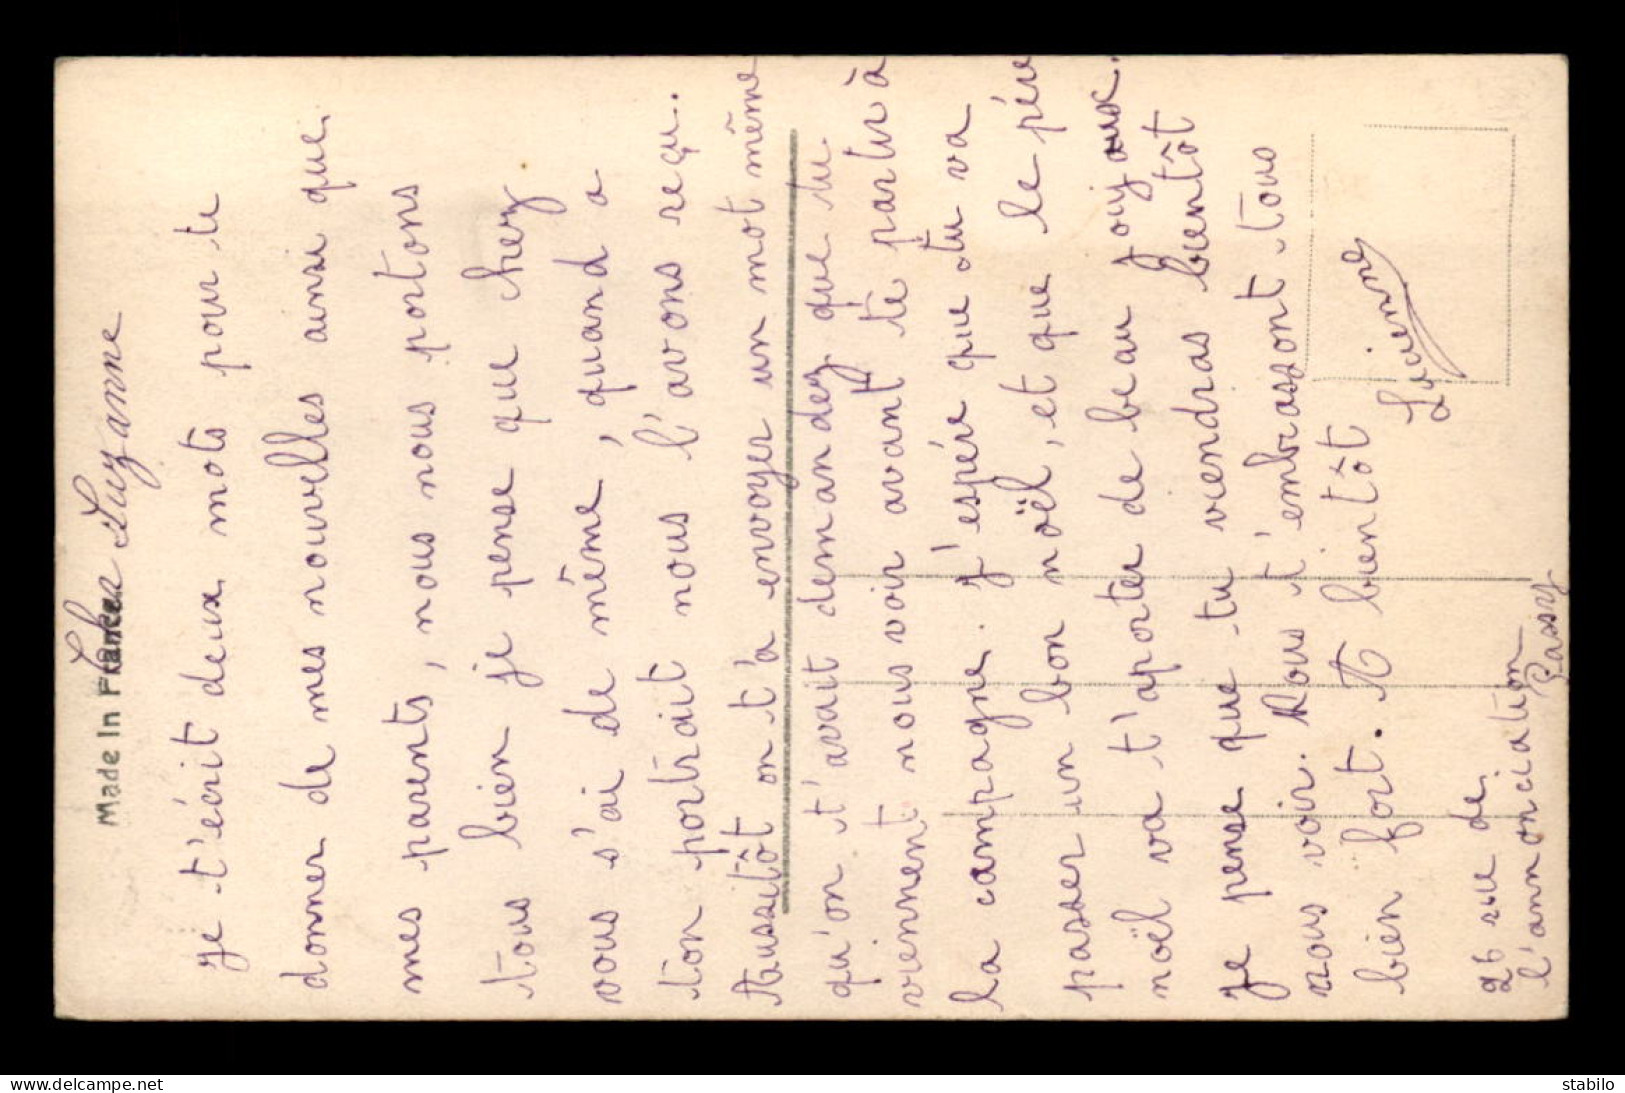 Made In France
Chère Suzanne
je t'écrit deux mots pour te
donner de mes nouvelles ainsi que
mes parents, nous nous portons
tous bien je pense que chez
vous s'ai de même, quand a
ton portrait nous l'avons reçu.
Aussitôt on t'a envoyer un mot même
qu'on t'avait demandez que tu
viennent nous voir avant te partir à
la campagne. J'espére que tu va
passer un bon noël, et que le pére
noël va t'aporter de beau jouyaux.
Je pense que tu viendras bientôt
nous voir. Nous t'embrassont tous
bien fort. A bientôt
Lucienne
26 rue de
l'annonciation
Passy
delcampe.net
stabilo